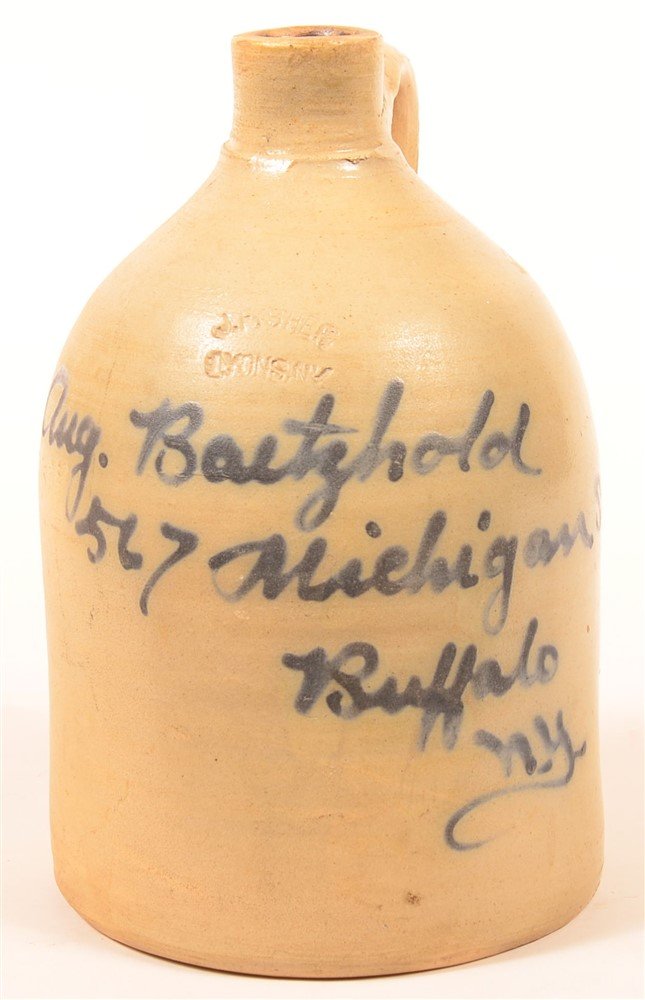 J. FISHER
LYONS N.Y.
Aug. Baetzhold
567 Michigan S
Buffalo
N.Y.